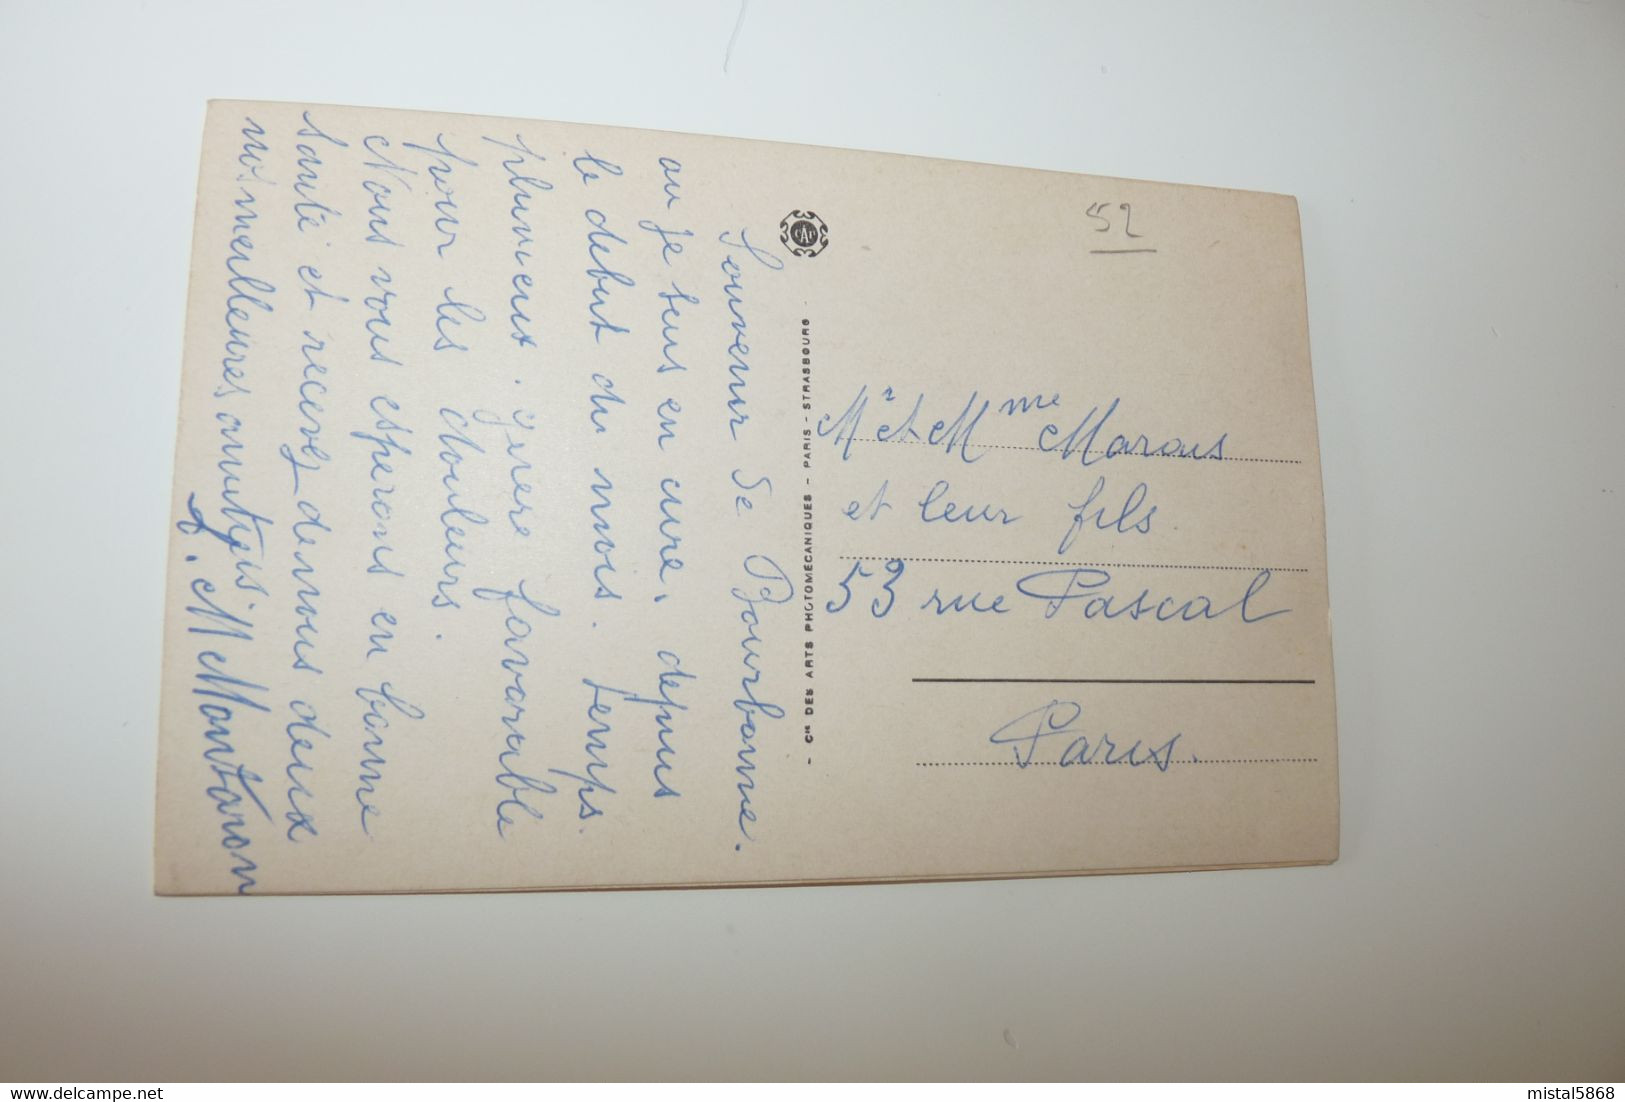 Souvenir de Bourbonne.
ou je suis en cure, depuis
le debut du mois. Temps
pluvieux. guere favorable
pour les douleurs.
Nous vous esperons en bonne
santé et recevez de nous deux
nos meilleures amitiés.
M Montaron
- Cie DES ARTS PHOTOMECANIQUES - PARIS - STRASBOURG -
CAP
52
Mr et Mme Marais
et leur fils.
53 rue Pascal
Paris.
mistal5868